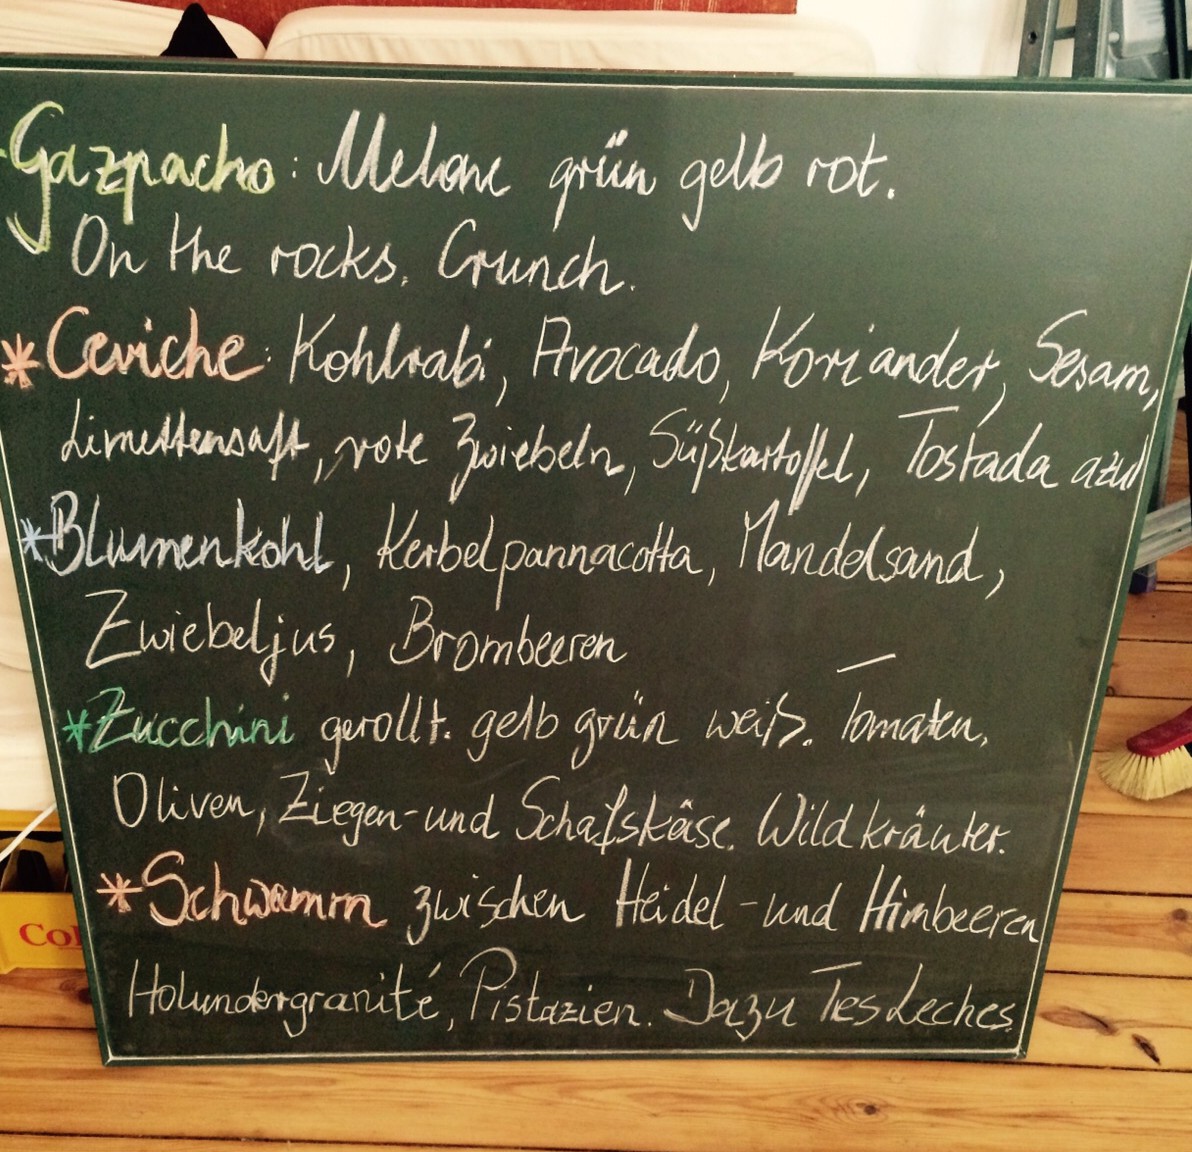 Gazpacho: Melone grün gelb rot.
On the rocks. Crunch.
* Ceviche: Kohlrabi, Avocado, Koriander, Sesam,
Limettensaft, rote Zwiebeln, Süßkartoffel, Tostada azul
* Blumenkohl, Kerbelpannacotta, Mandelsand,
Zwiebeljus, Brombeeren
* Zucchini gerollt. gelb grün weiß. Tomaten,
Oliven, Ziegen- und Schafskäse. Wildkräuter.
* Schwamm zwischen Heidel- und Himbeeren
Holundergranité, Pistazien. Dazu Tres Leches.